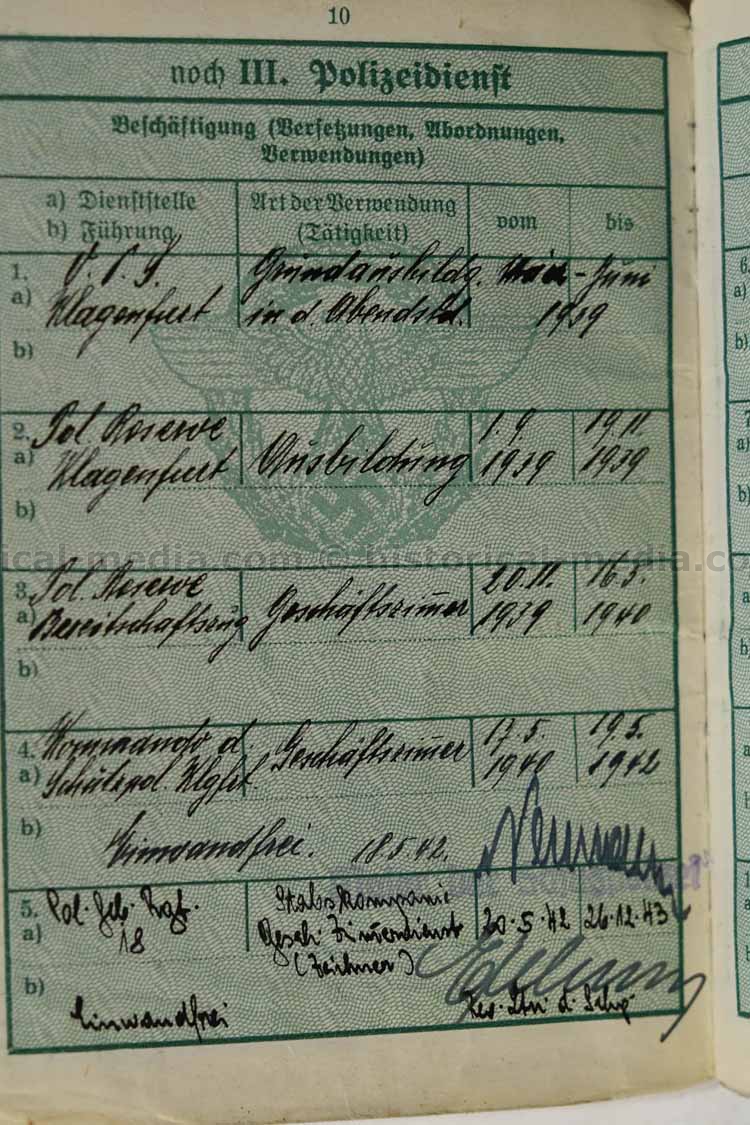 10
noch III. Polizeidienst
Beschäftigung (Versetzungen, Abordnungen,
Verwendungen)
a) Dienststelle
b) Führung
Art der Verwendung
(Tätigkeit)
vom
bis
1.
a) Klagenfurt
Grundausbildg.
in d. Abendstd.
- Juni
1939
b)
2. Pol. Reserve
a) Klagenfurt
Ausbildung
1.9.
1939
19.11.
1939
b)
3. Pol. Reserve
a) Bereitschaftszug
Geschäftszimmer
20.11.
1939
16.5.
1940
b)
4. Kommando d.
a) Schutzpol. Klgfrt.
Geschäftszimmer
17.5.
1940
19.5.
1942
b) Einwandfrei. 18.5.42.
5. Pol. Geb. Rgt.
a) 18
Stabskompanie
Gesch. Zimmerdienst
(Zeichner)
20.5.42
26.12.43
b)
Einwandfrei
Res. Ltn. d. Schp.
historical-media.com © historical-media.com
6.
a)
b)